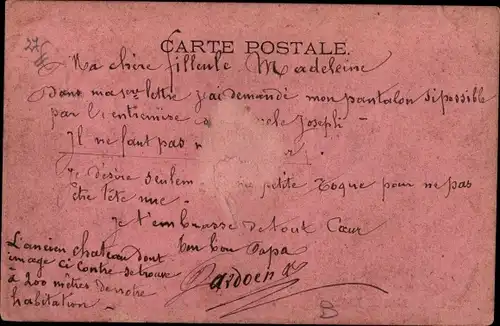 27
CARTE POSTALE.
Ma chère filleule Madeleine
Dans ma lettre j'ai demandé mon pantalon si possible
par l'entremise Joseph -
Il ne faut pas
Je désire seulem petite toque pour ne pas
être tête nue -
Je t'embrasse de tout Cœur
ton bon Papa
Pardoen
L'ancien chateau dont
image ci contre se trouve
à 200 mètres de notre
habitation -
B